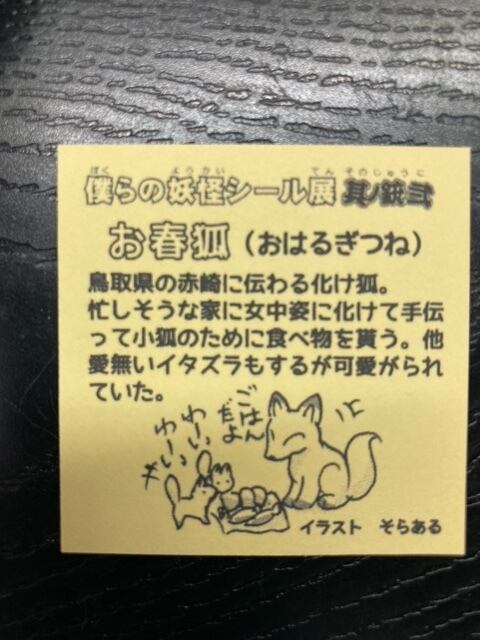 僕らの妖怪シール展 其ノ銃弐
お春狐（おはるぎつね）
鳥取県の赤崎に伝わる化け狐。
忙しそうな家に女中姿に化けて手伝
って小狐のために食べ物を貰う。他
愛無いイタズラもするが可愛がられ
ていた。
ごはん
だよ
わーい
わーい
イラスト　そらある